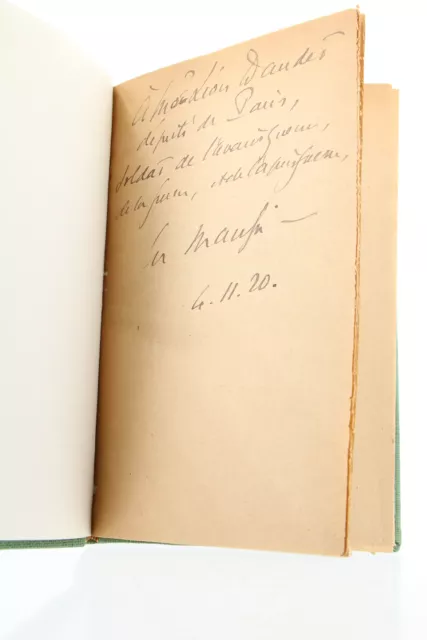 À M. Léon Daudet
député de Paris,
soldat de l'avant guerre,
de la guerre, et de l'après guerre,
4. 11. 20.